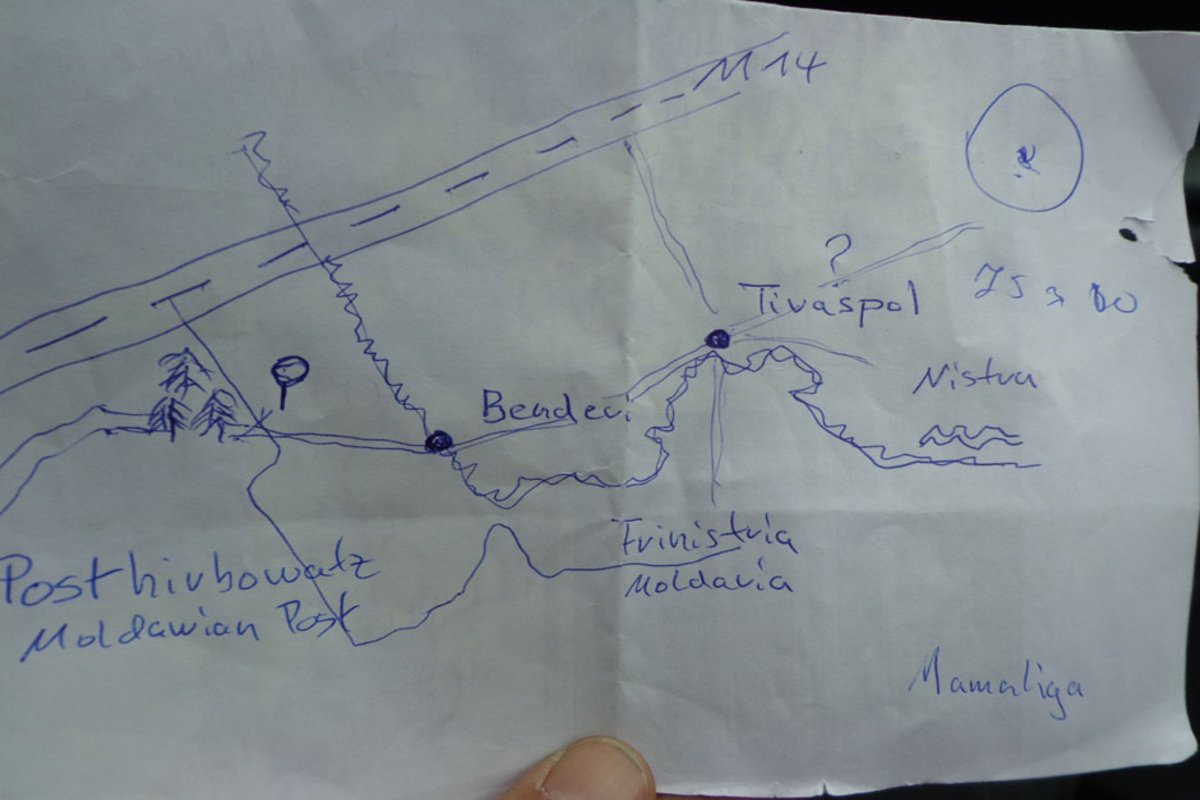 M14
?
Tiraspol
Nistru
Benderi
Trinistria
Moldavia
Posthirbowatz
Moldawian Post
Mamaliga